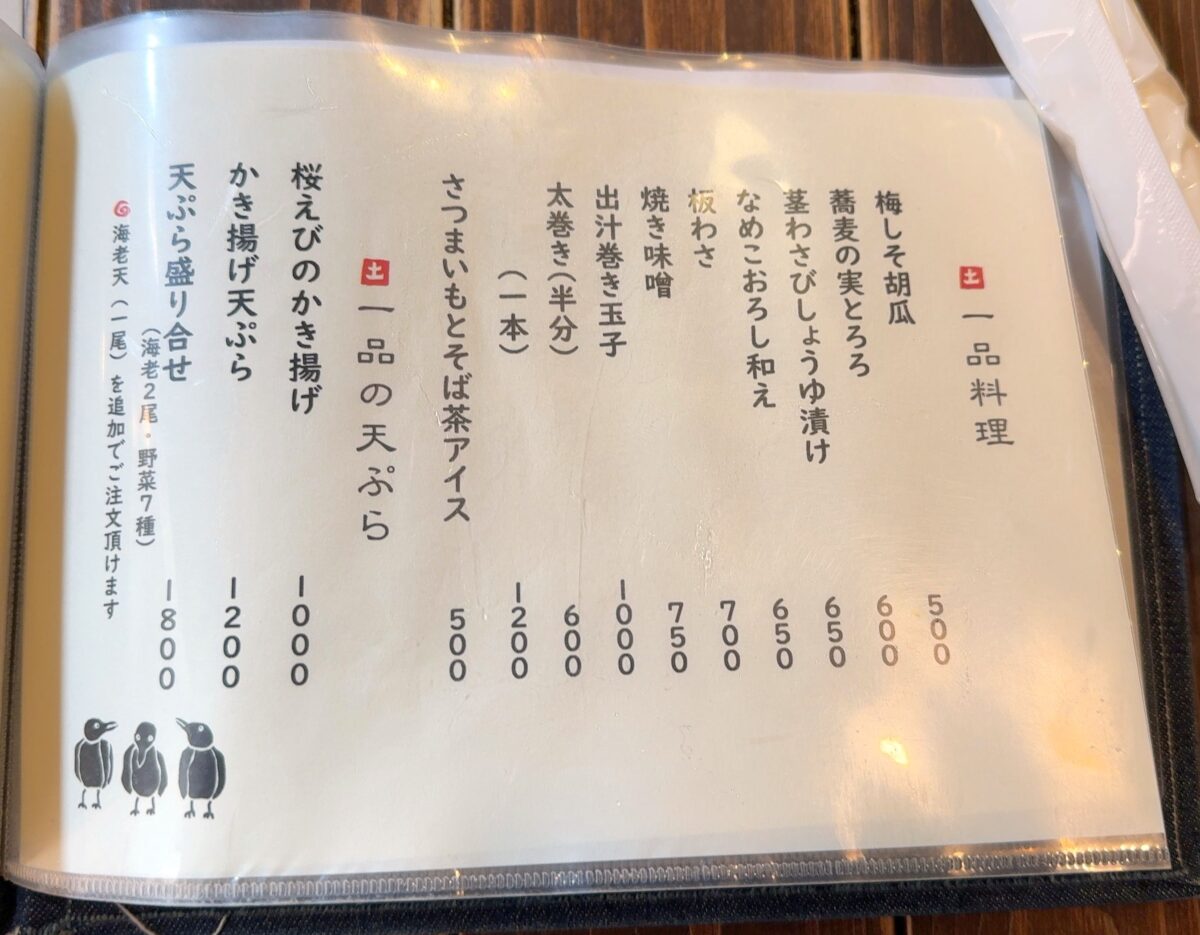 土 一品料理
梅しそ胡瓜 500
蕎麦の実とろろ 600
茎わさびしょうゆ漬け 650
なめこおろし和え 650
板わさ 700
焼き味噌 750
出汁巻き玉子 1000
太巻き(半分) 600
(一本) 1200
さつまいもとそば茶アイス 500
土 一品の天ぷら
桜えびのかき揚げ 1000
かき揚げ天ぷら 1200
天ぷら盛り合せ 1800
(海老2尾・野菜7種)
海老天(一尾)を追加でご注文頂けます